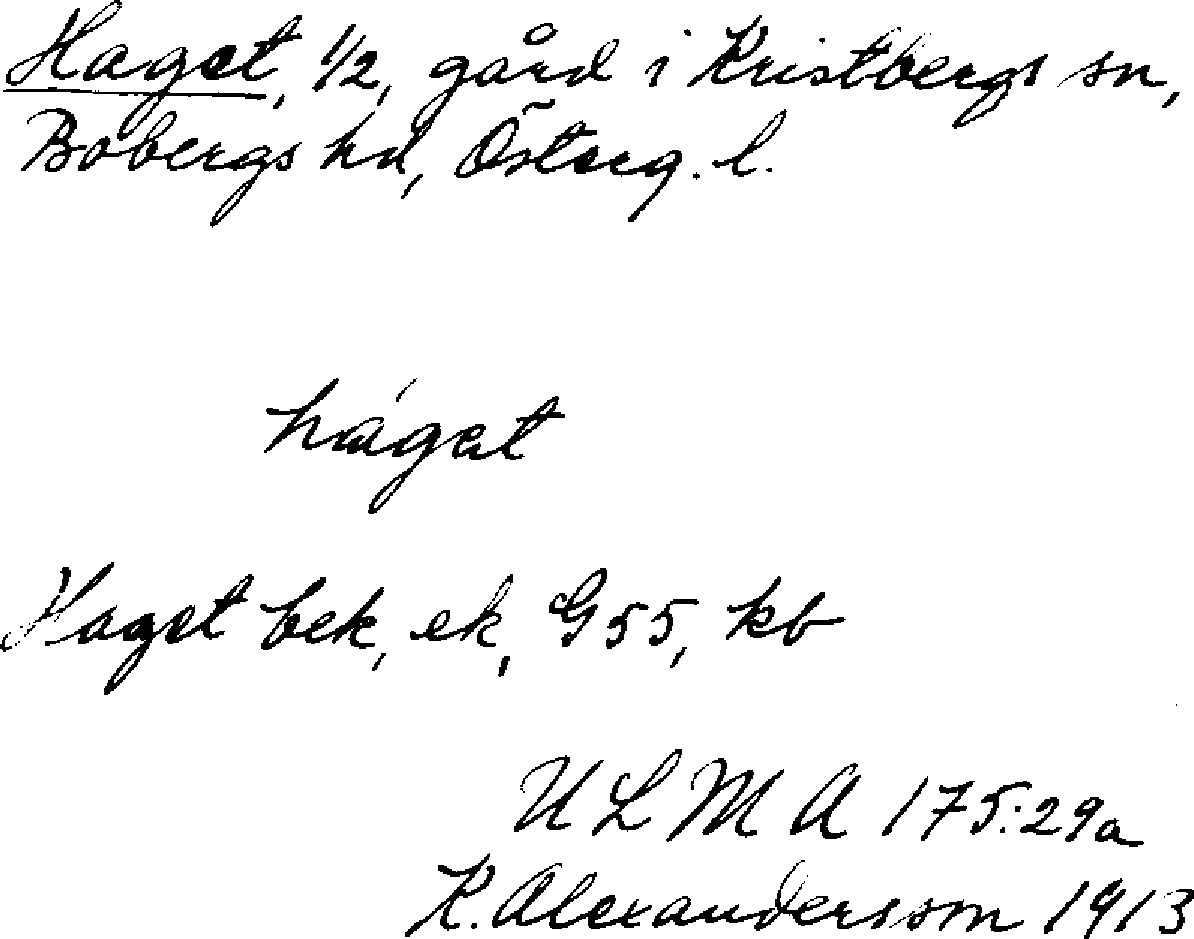 Haget, 1/2, gård i Kristbergs sn,
Bobergs hd, Österg. l.
háget
Haget bek, ek, G55, kb
ULMA 175:29a
K. Alexandersson 1913